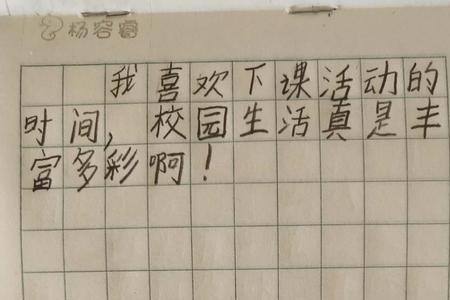 杨容睿
我喜欢下课活动的
时间，校园生活真是丰
富多彩啊！